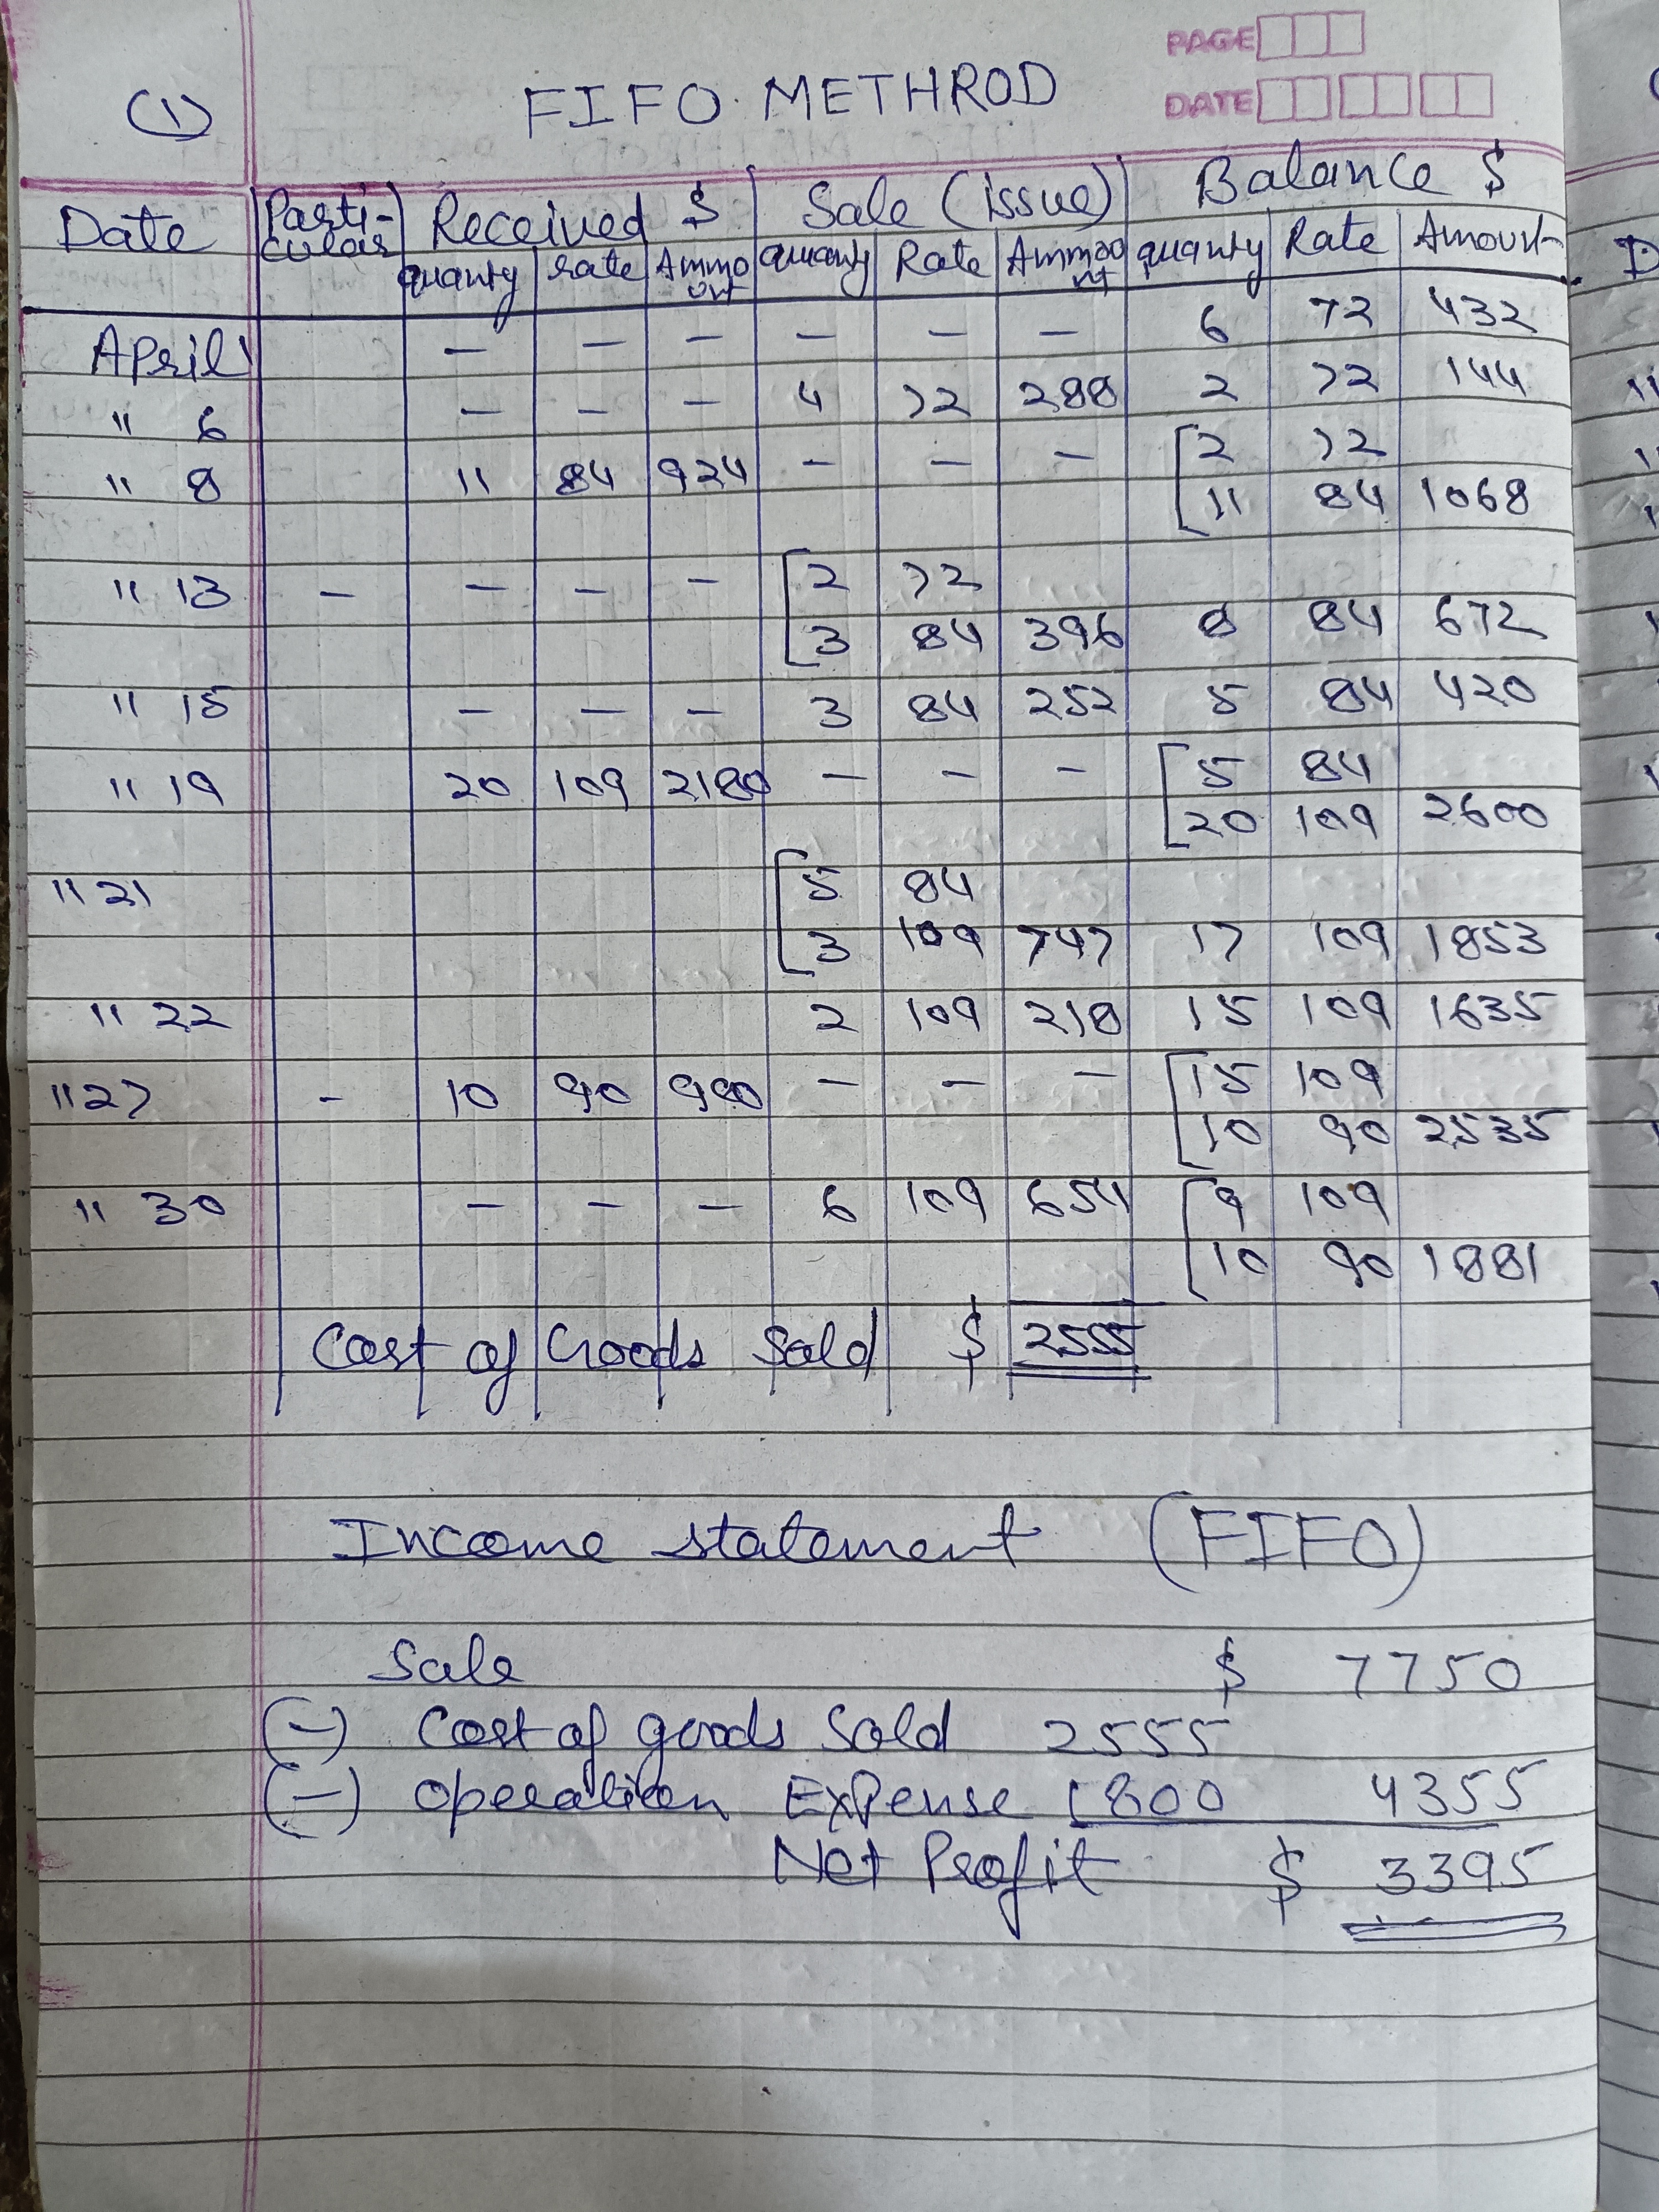 PAGE
DATE
(1) FIFO METHROD
Date Parti-culars Received $ Sale (issue) Balance $
quanty rate Ammo unt quanty Rate Ammou nt quanty Rate Amount
April 1 — — — — — — 6 72 432
" 6 — — — 4 72 288 2 72 144
" 8 11 84 924 — — — [2 72
[11 84 1068
" 13 — — — — [2 72
[3 84 396 8 84 672
" 15 — — — 3 84 252 5 84 420
" 19 20 109 2180 — — — [5 84
[20 109 2600
" 21 [5 84
[3 109 747 17 109 1853
" 22 2 109 218 15 109 1635
" 27 - 10 90 900 — — — [15 109
[10 90 2535
" 30 — — — 6 109 654 [9 109
[10 90 1881
Cost of Goods Sold $ 2555
Income statement (FIFO)
Sale $ 7750
(-) Cost of goods Sold 2555
(-) operation Expense 1800 4355
Net Profit $ 3395